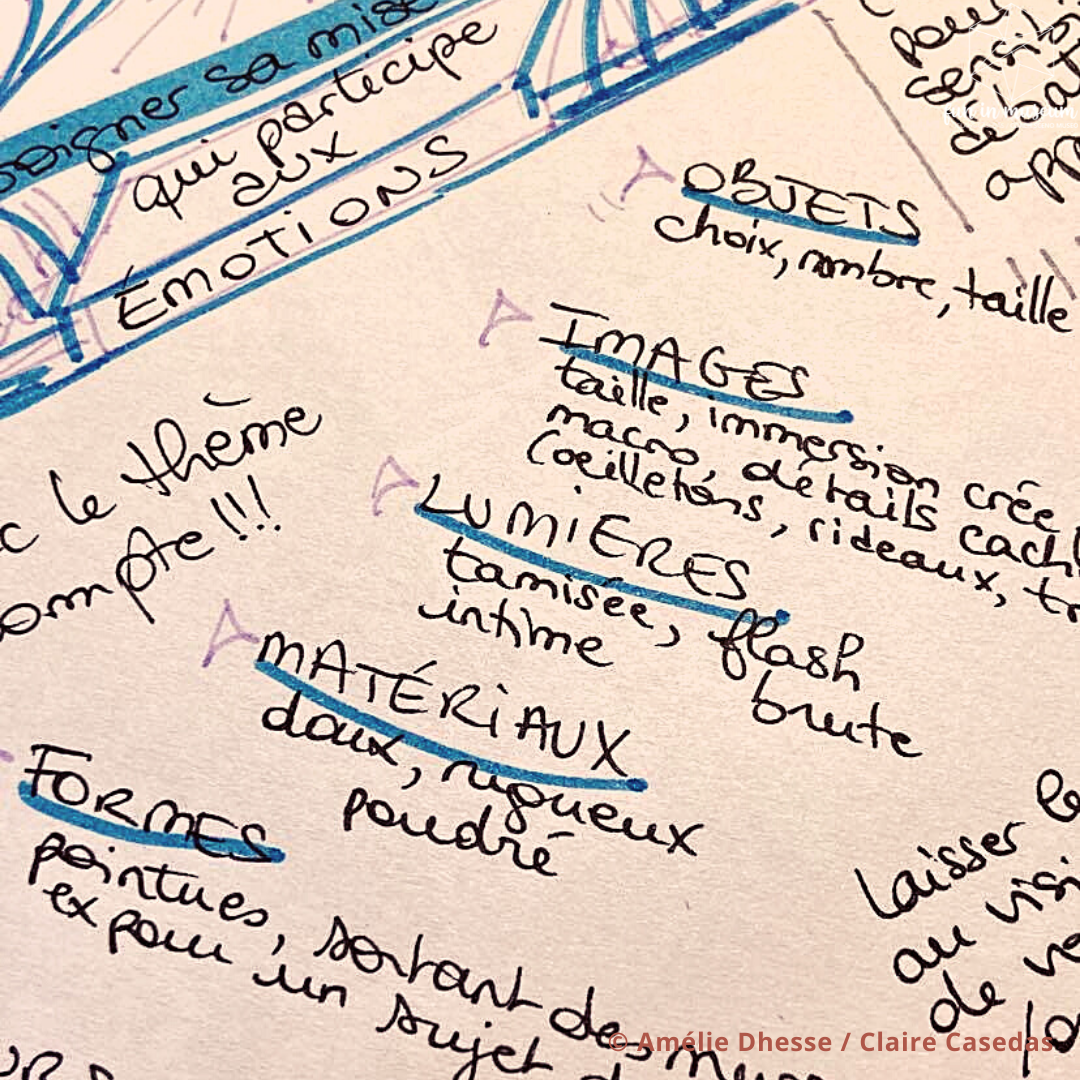 soigner sa mise
qui participe
aux
ÉMOTIONS
pour
sensib
de
app
fun in museum
OBJETS
choix, nombre, taille
IMAGES
taille, immersion crée
macro, détails cach
(œilletons, rideaux, tr
LUMIÈRES
tamisée, flash
intime
brute
c le thème
ompte!!!
MATÉRIAUX
doux, rugueux
poudré
FORMES
pointues, sortant des murs
ex pour un sujet d
laisser le
au visi
de ve
© Amélie Dhesse / Claire Casedas